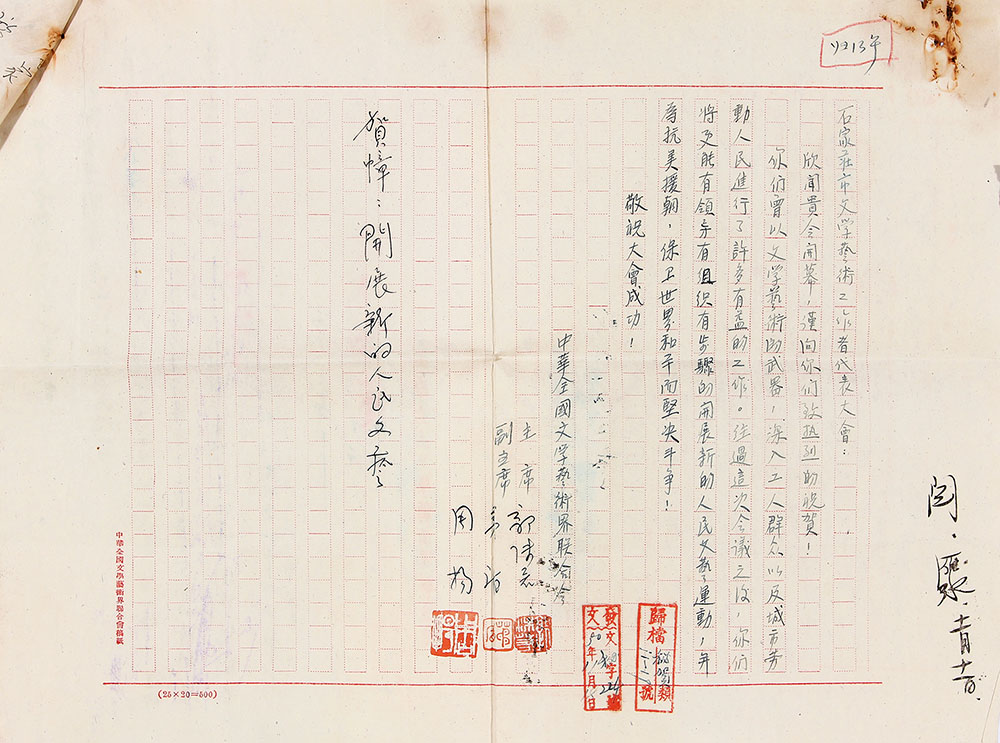 归13年
石家莊市文学藝術工作者代表大會：
欣聞貴会開幕，謹向你们致热烈的祝賀！
你们曾以文学藝術的武器，深入工人群众以及城市劳
動人民進行了許多有益的工作。往過這次会議之後，你们
將更能有領导有组织有步驟的開展新的人民文藝運動，并
為抗美援朝，保卫世界和平而堅決斗争！
敬祝大會成功！
中華全國文学藝術界联合会
主席 郭沫若
副主席 茅盾
周揚
賀幛：開展新的人民文藝
歸檔
類
號
發文
文字 號
50年11月 日
中華全國文學藝術界聯合會稿紙
(25×20=500)
十一月十一日